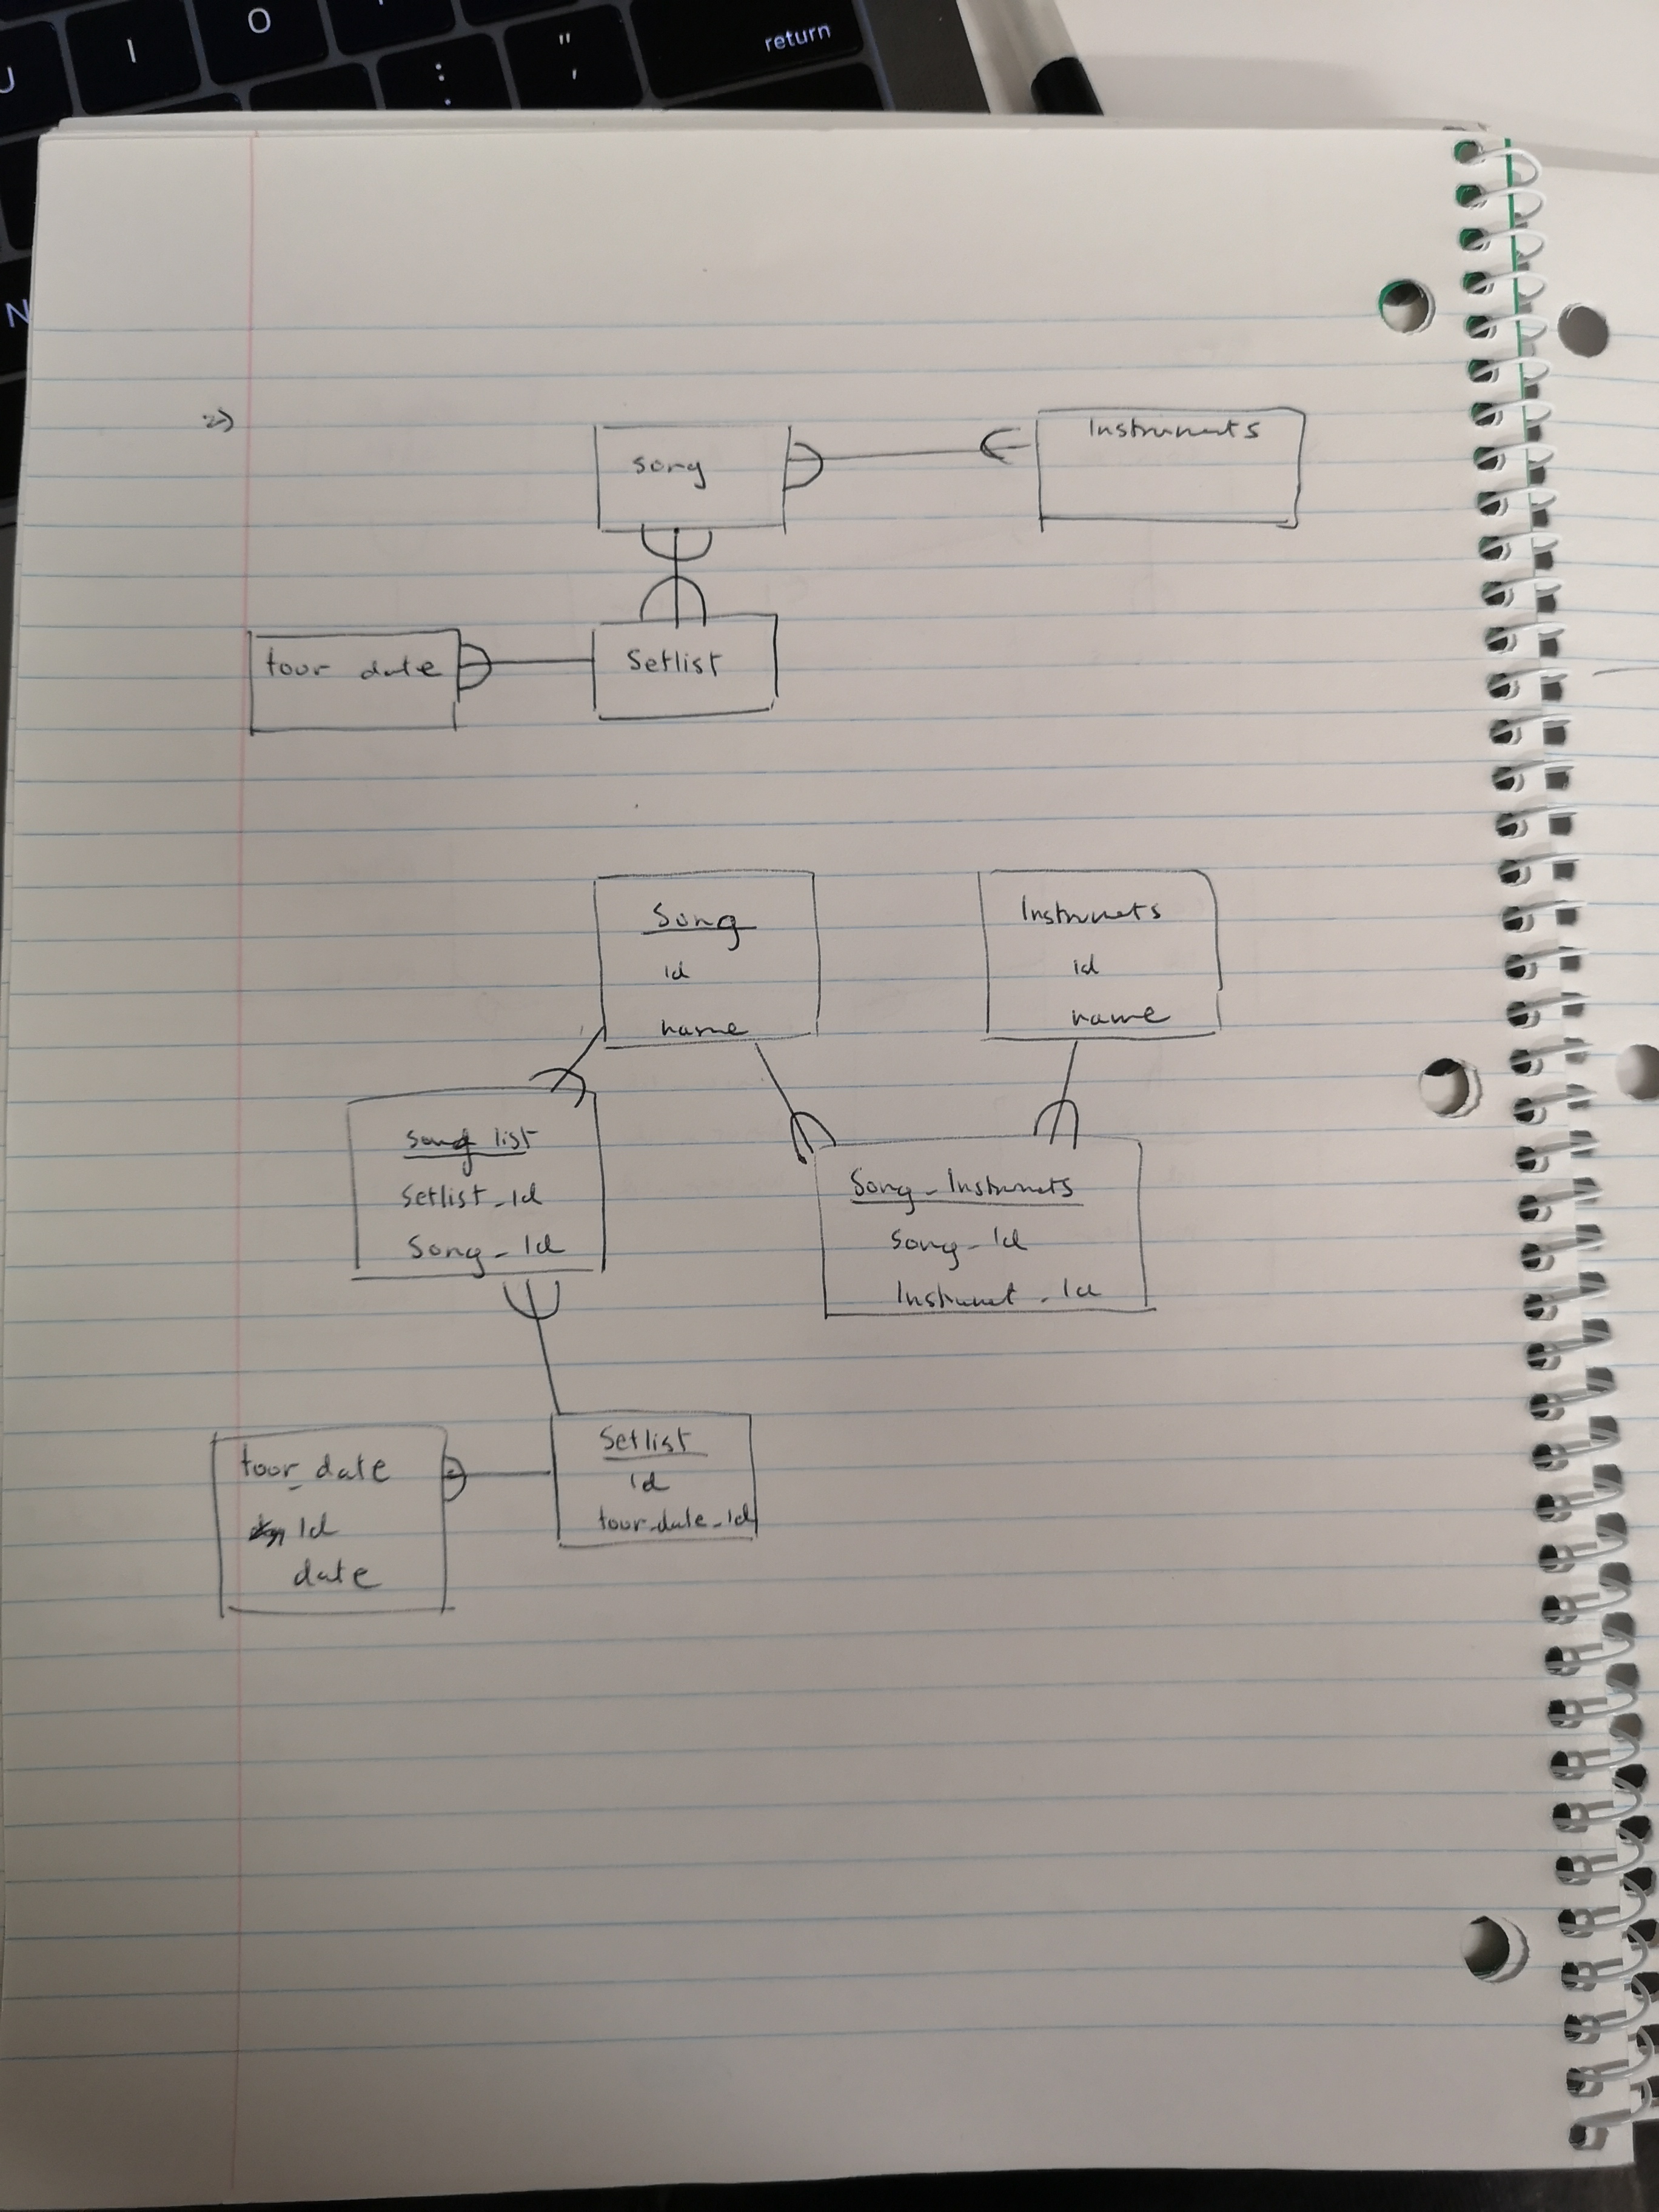 O
I
U
"
'
return
:
;
N
2)
song
Instruments
tour date
Setlist
Song
id
name
Instrumets
id
name
song list
Setlist_id
Song_Id
Song_Instrumets
Song_Id
Instrumet_Id
tour_date
Id
date
Setlist
id
tour_date_id